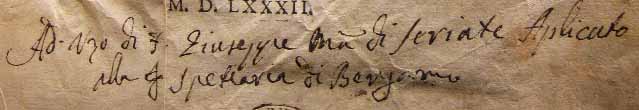 M. D. LXXXII.
Ad. uzo di f. Giuseppe Ma di Seriate Aplicato
alla Spetiaria di Bergamo